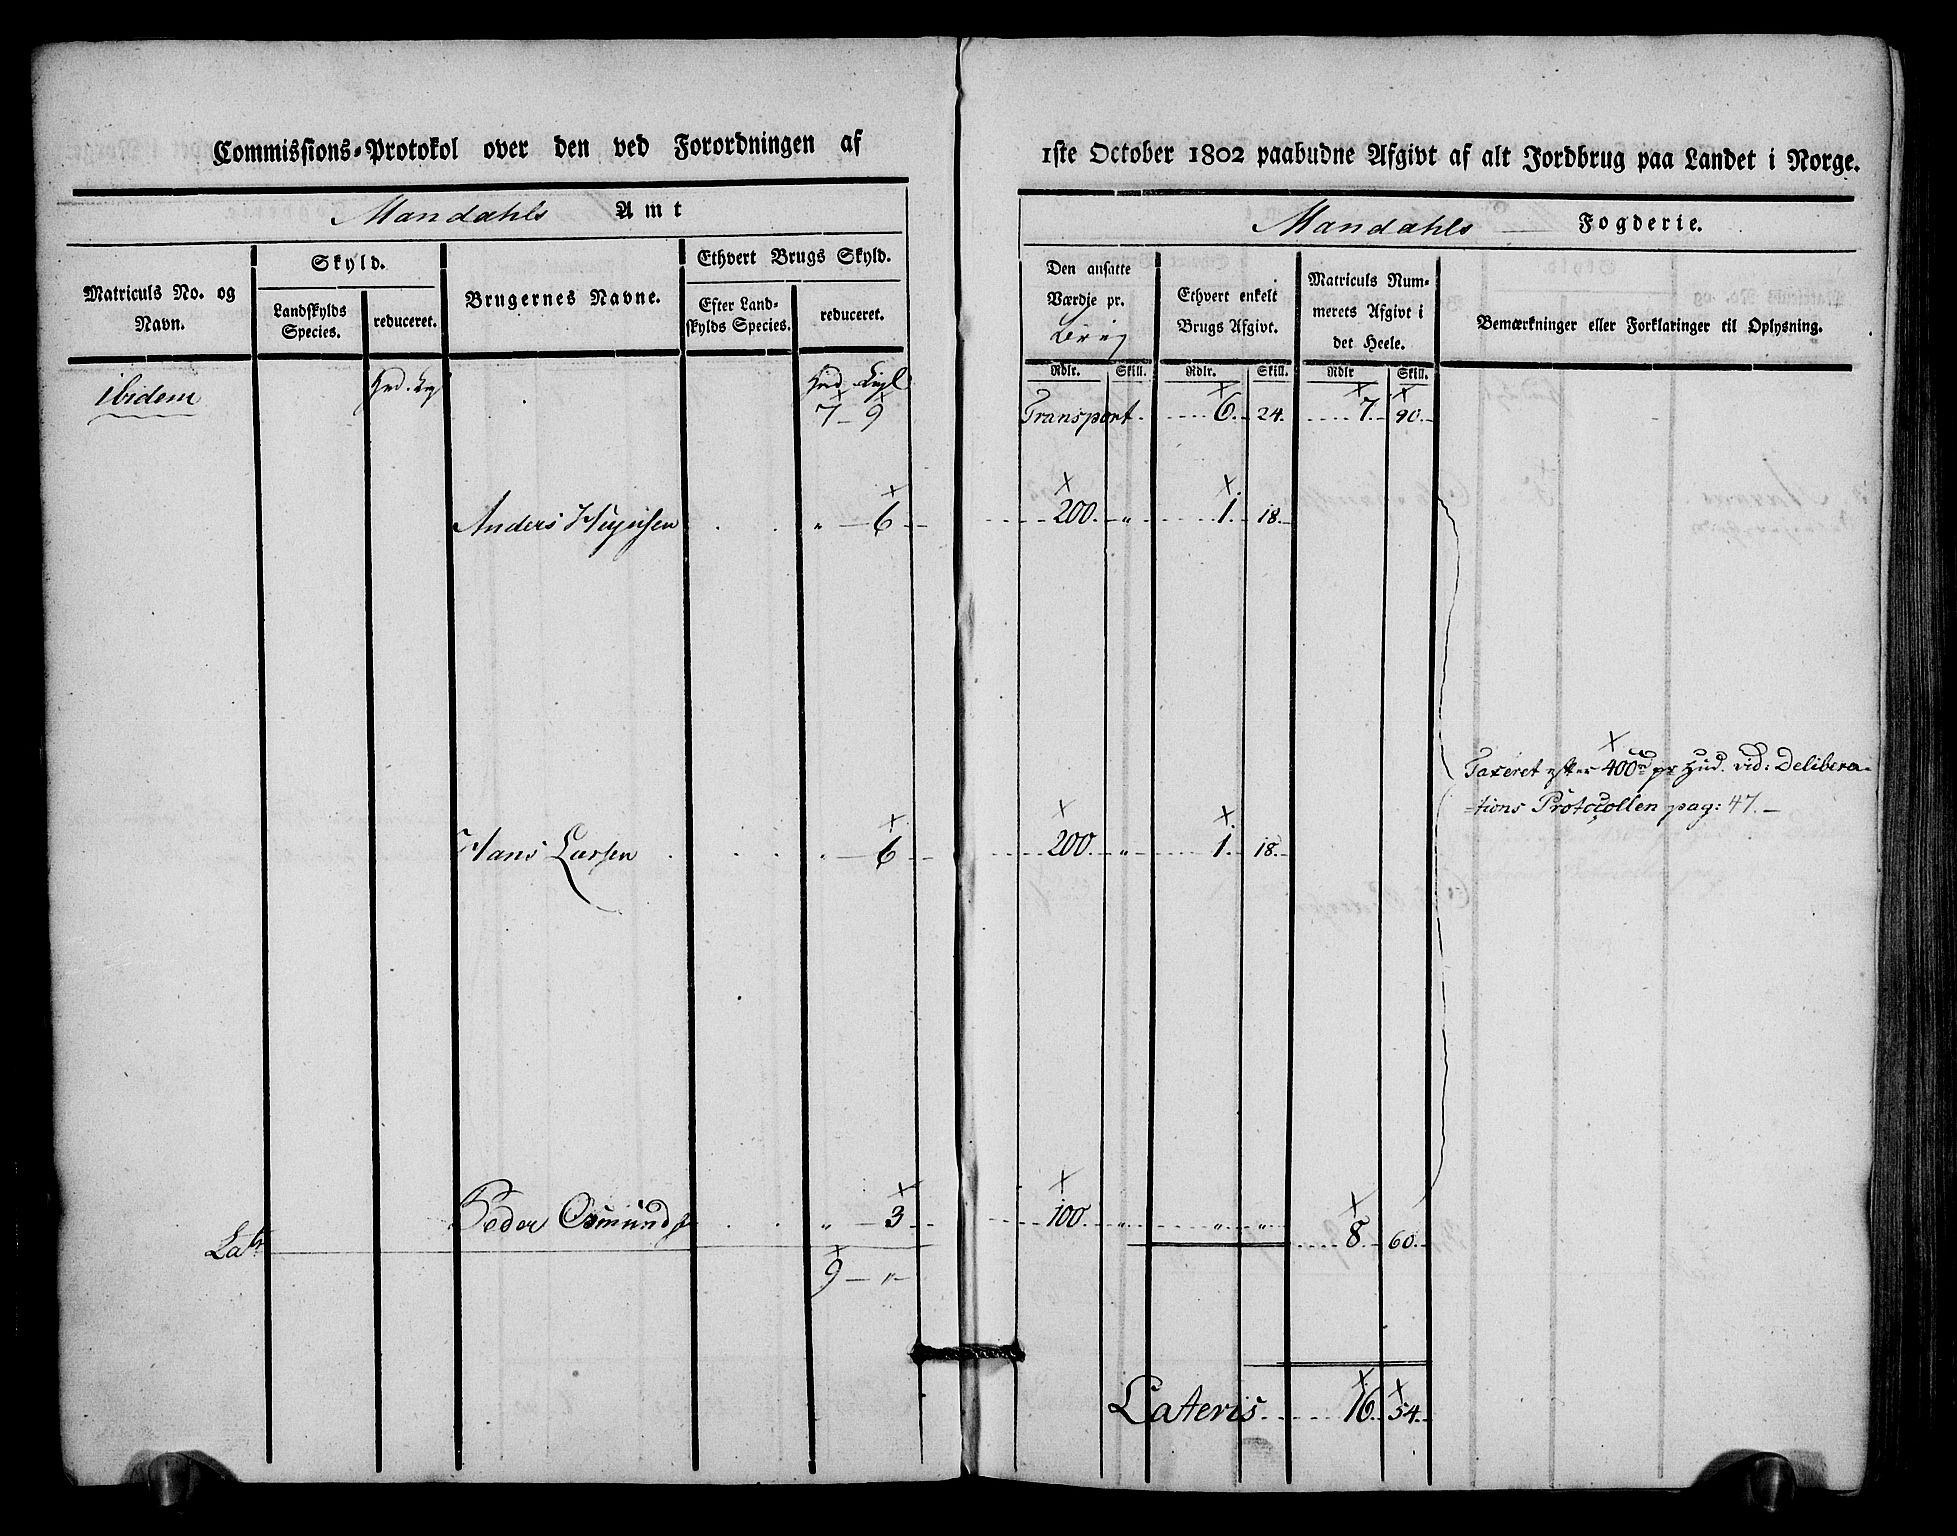 Commissions-Protokol over den ved Forordningen af
Mandahls Amt
Matriculs No. og Navn.
Skyld.
Landskylds Species.
reduceret.
Brugernes Navne.
Ethvert Brugs Skyld.
Efter Land-
skylds Species.
reduceret.
ibidem
7 — 9
Anders „ — 6
Hans Larsen „ — 6
Peder Osmunds „ — 3
Lats
9 — „
1ste October 1802 paabudne Afgivt af alt Jordbrug paa Landet i Norge.
Mandahls Fogderie.
Den ansatte
Værdje pr.
Brug
Ethvert enkelt
Brugs Afgivt.
Matriculs Num-
merets Afgivt i
det Heele.
Bemærkninger eller Forklaringer til Oplysning.
Rdlr. Skill. Rdlr. Skill. Rdlr Skill.
Transport. 6. 24. 7. 90.
200. „ 1. 18.
Taxeret efter 400rd pr Hud. vid: Delibera-
-tions Protocollen pag: 47. —
200. „ 1. 18.
100. „ „ „ 8. 60.
Lateris 16. 54.